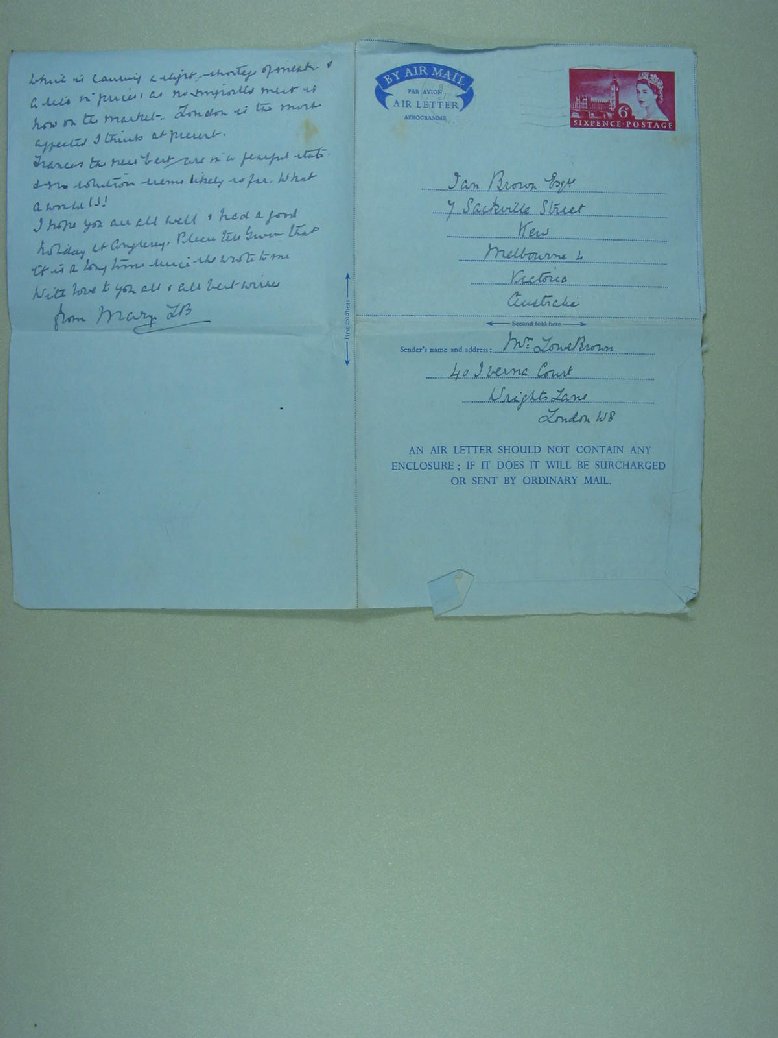 which is causing a slight shortage of meat &
a rise in prices, as no Smithfield meat is
now on the market. London is the most
affected I think at present.
France & the near East are in a fearful state
& no solution seems likely so far. What
a world!
I hope you are all well & had a good
holiday at. Please tell Gwen that
it is a long time since she wrote to me
With love to you all & all best wishes
from Mary LB
First fold here
BY AIR MAIL
PAR AVION
AIR LETTER
AEROGRAMME
6D
SIXPENCE POSTAGE
Ian Brown Esqr
7 Sackville Street
Kew
Melbourne
Victoria
Australia
Second fold here
Sender's name and address: Mrs Lowe Brown
40 Iverna Court
Wrights Lane
London W8
AN AIR LETTER SHOULD NOT CONTAIN ANY
ENCLOSURE ; IF IT DOES IT WILL BE SURCHARGED
OR SENT BY ORDINARY MAIL.